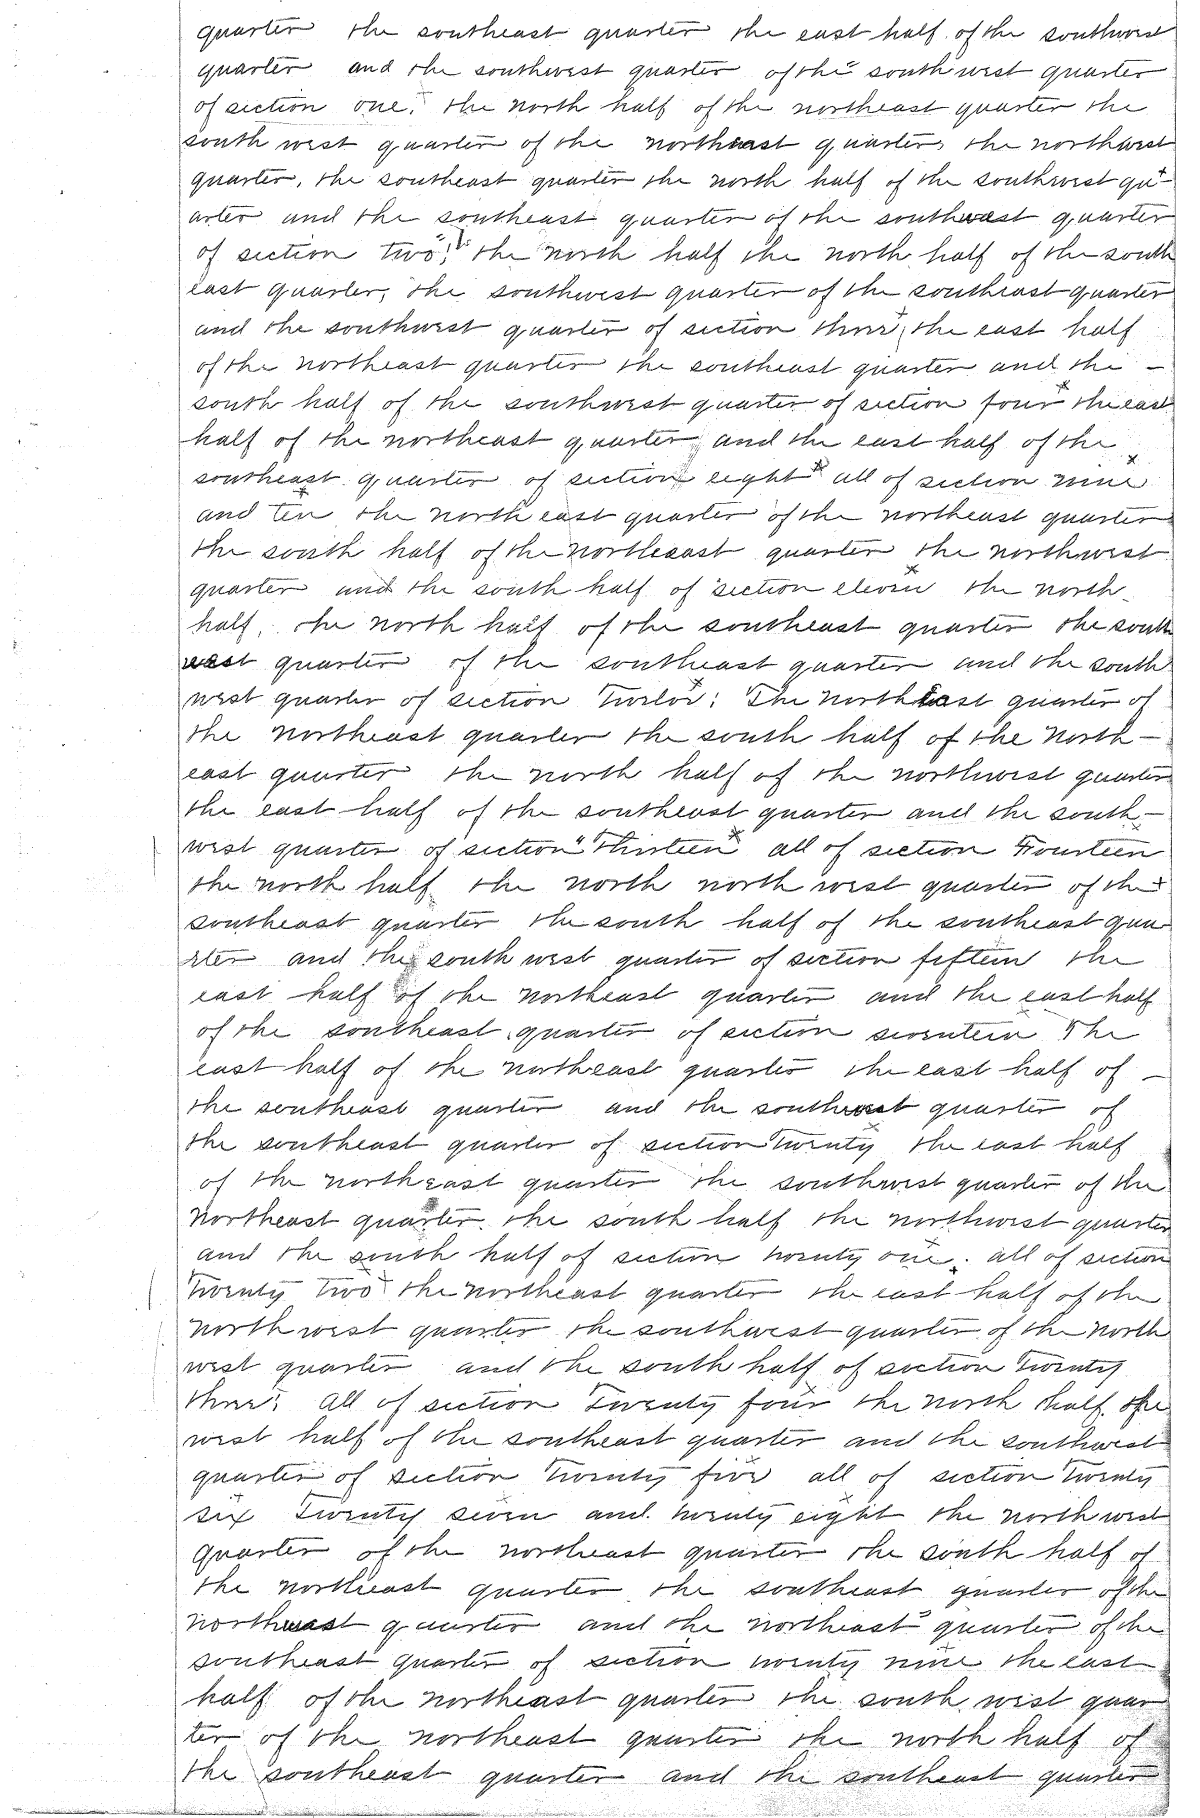 quarter the southeast quarter the east half of the southwest
quarter and the southwest quarter of the south west quarter
of section one. the north half of the northeast quarter the
south west quarter of the northeast quarter, the northwest
quarter, the southeast quarter the north half of the southwest qu-
arter and the southeast quarter of the southwest quarter
of section two, the north half the north half of the south
east quarter, the southwest quarter of the southeast quarter
and the southwest quarter of section three, the east half
of the northeast quarter the southeast quarter and the -
south half of the southwest quarter of section four the east
half of the northeast quarter and the east half of the
southeast quarter of section eight all of section nine
and ten the north east quarter of the northeast quarter
the south half of the northeast quarter the northwest
quarter and the south half of section eleven the north
half, the north half of the southeast quarter the south
east quarter of the southeast quarter and the south
west quarter of section Twelve; The northeast quarter of
the northeast quarter the south half of the North-
east quarter the north half of the northwest quarter
the east half of the southeast quarter and the south-
west quarter of section Thirteen all of section Fourteen
the north half the north north west quarter of the
southeast quarter the south half of the southeast qua
rter and the south west quarter of section fifteen the
east half of the northeast quarter and the east half
of the southeast quarter of section seventeen The
east half of the northeast quarter the east half of -
the southeast quarter and the southwest quarter of
the southeast quarter of section Twenty the east half
of the northeast quarter the southwest quarter of the
Northeast quarter the south half the northwest quarter
and the south half of section twenty one. all of section
Twenty two the northeast quarter the east half of the
north west quarter the southwest quarter of the North
west quarter and the south half of section Twenty
three; All of section Twenty four the north half the
west half of the southeast quarter and the southwest
quarter of section Twenty five all of section Twenty
six Twenty seven and twenty eight the north west
quarter of the northeast quarter the south half of
the northeast quarter the southeast quarter of the
northwest quarter and the northeast quarter of the
southeast quarter of section twenty nine the east
half of the northeast quarter the south west quar
ter of the northeast quarter the north half of
the southeast quarter and the southeast quarter